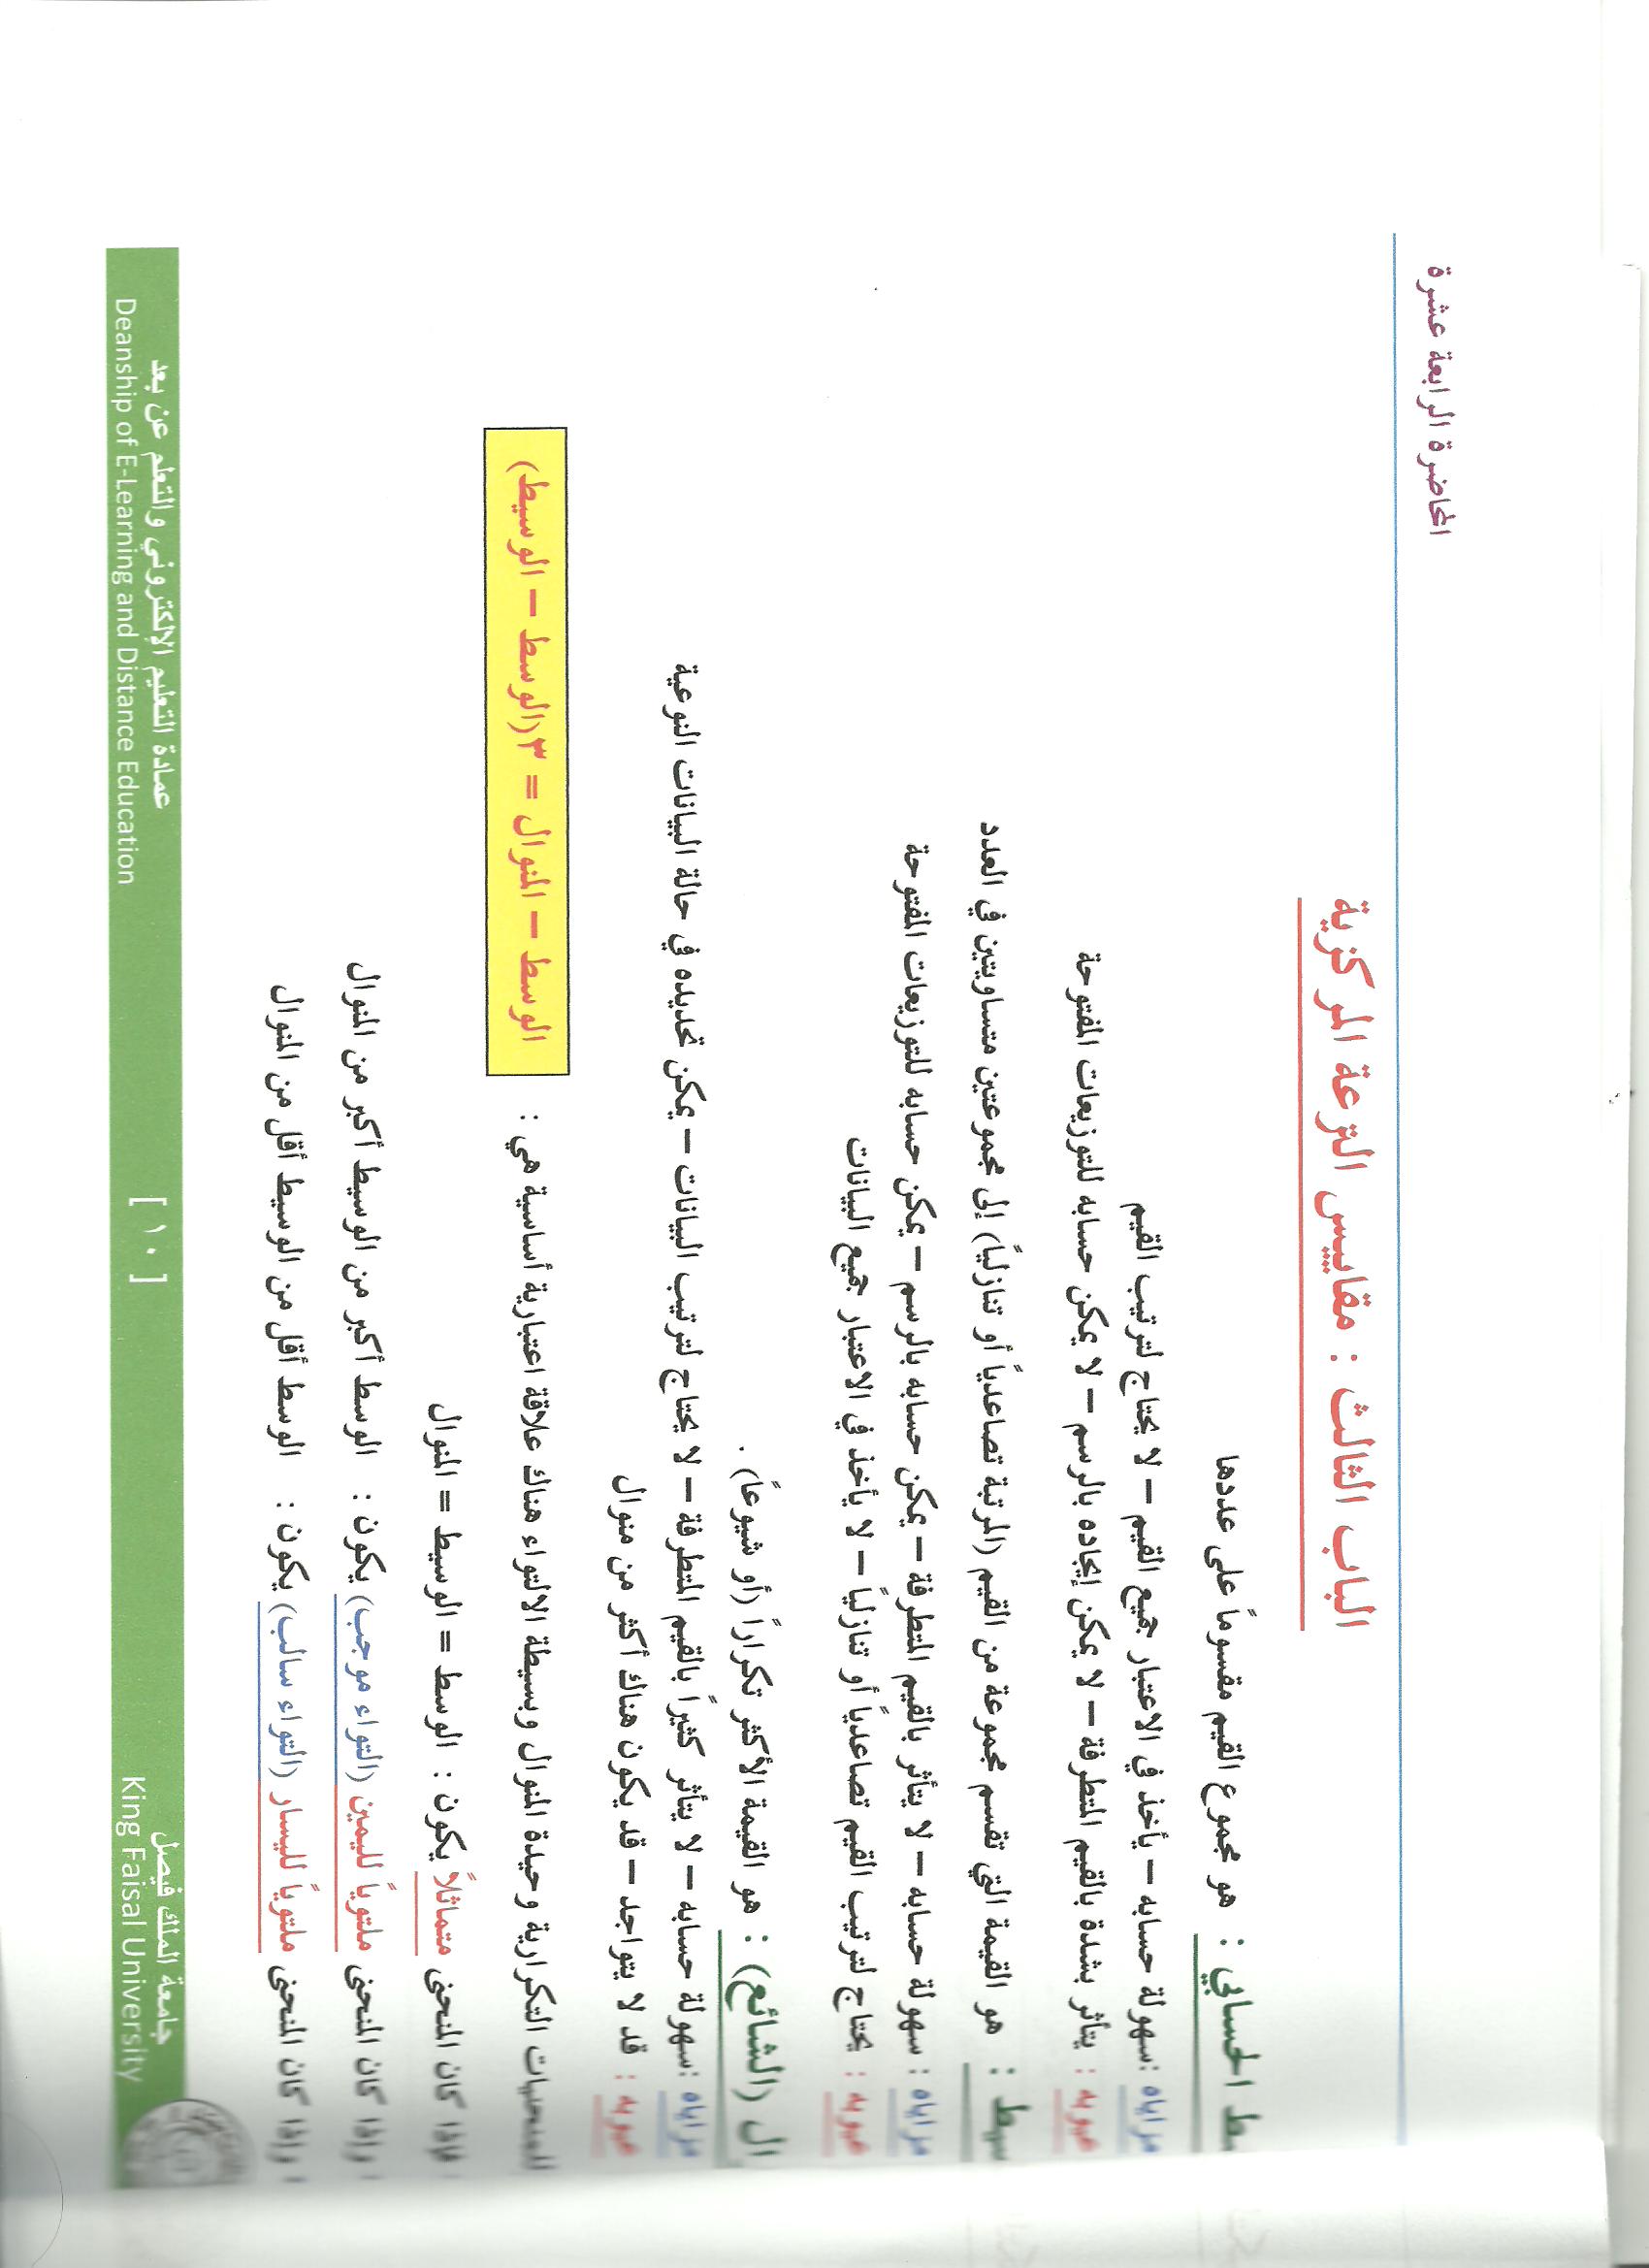 المحاضرة الرابعة عشرة
الباب الثالث : مقاييس النزعة المركزية
الحسابي : هو مجموع القيم مقسوماً على عددها
مزاياه : سهولة حسابه – يأخذ في الاعتبار جميع القيم – لا يحتاج لترتيب القيم
عيوبه : يتأثر بشدة بالقيم المتطرفة – لا يمكن إيجاده بالرسم – لا يمكن حسابه للتوزيعات المفتوحة
: هو القيمة التي تقسم مجموعة من القيم (المرتبة تصاعدياً أو تنازلياً) إلى مجموعتين متساويتين في العدد
مزاياه : سهولة حسابه – لا يتأثر بالقيم المتطرفة – يمكن حسابه بالرسم – يمكن حسابه للتوزيعات المفتوحة
عيوبه : يحتاج لترتيب القيم تصاعدياً أو تنازلياً – لا يأخذ في الاعتبار جميع البيانات
ال (الشائع) : هو القيمة الأكثر تكراراً (أو شيوعاً) .
مزاياه : سهولة حسابه – لا يتأثر كثيراً بالقيم المتطرفة – لا يحتاج لترتيب البيانات – يمكن تحديده في حالة البيانات النوعية
عيوبه : قد لا يتواجد – قد يكون هناك أكثر من منوال
للمنحنيات التكرارية وحيدة المنوال وبسيطة الالتواء هناك علاقة اعتبارية أساسية هي : الوسط – المنوال = ٣(الوسط – الوسيط)
فإذا كان المنحنى متماثلاً يكون : الوسط = الوسيط = المنوال
وإذا كان المنحنى ملتوياً لليمين (التواء موجب) يكون : الوسط أكبر من الوسيط أكبر من المنوال
وإذا كان المنحنى ملتوياً لليسار (التواء سالب) يكون : الوسط أقل من الوسيط أقل من المنوال
جامعة الملك فيصل
King Faisal University
[ ١٠ ]
عمادة التعليم الإلكتروني والتعلم عن بعد
Deanship of E-Learning and Distance Education